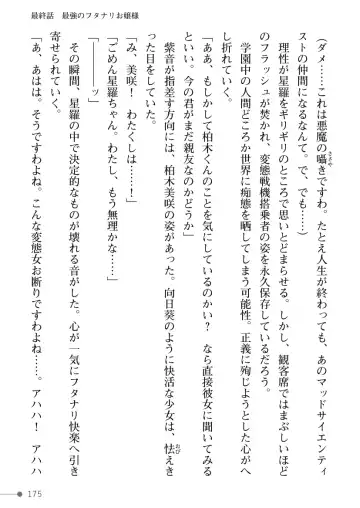 最終話　最強のフタナリお嬢様
（ダメ……これは悪魔の囁きですわ。たとえ人生が終わっても、あのマッドサイエンティ
ささや
ストの仲間になるなんて。で、でも……）
理性が星羅をギリギリのところで思いとどまらせる。しかし、観客席ではまぶしいほど
のフラッシュが焚かれ、変態戦機搭乗者の姿を永久保存しているだろう。
学園中の人間どころか世界に痴態を晒してしまう可能性。正義に殉じようとした心がへ
し折れていく。
「しかし今でも柏木くんのことを気にしているのかい？　なら直接彼女に聞いてみる
といい。今の君がまだ親友なのかどうか」
紫音が指差す方向には、柏木美咲の姿があった。向日葵のように快活な少女は、怯えき
おび
った目をしていた。
「み、美咲！　わたくしは……！」
「ごめん星羅ちゃん。わたし、もう無理かな……」
「――ッ」
その瞬間、星羅の中で決定的なものが壊れる音がした。心が一気にフタナリ快楽へ引き
寄せられていく。
「あ、あはは。そうですわよね。こんな変態女お断りですわよね……。アハハ！　アハハ
175